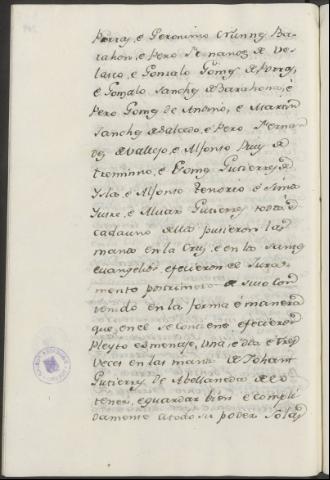 Porras, é Geronimo Nunny Ba-
rahon, é Pero Fernandez de Ve-
lasco, é Gonsalo Gomes de Porras,
é Gonsalo Sanchz de Barahona, é
Pero Gomes de Andino, é Martin
Sanchz de Salcedo, é Pero Fernan-
dez de Vallejo, é Alfonso Ruiz de
tremiño, é Gomez Gutierrez de
Ysla, é Alfonso Tenorio é
é Alvar Gutierrez todos é
cadauno dellos pusieron las
manos en la Cruz, é en los santos
evangelios, é ficieron el Jura-
mento postrimero de suso con
tenido en la forma é manera
que en el se contiene é ficieron
Pleyto é omenaje, una, é dos, é tres
veces en las manos de Johan
Gutierrez de Abellaneda de lo
tener, é guardar bien é compli
damente á todo su poder solas